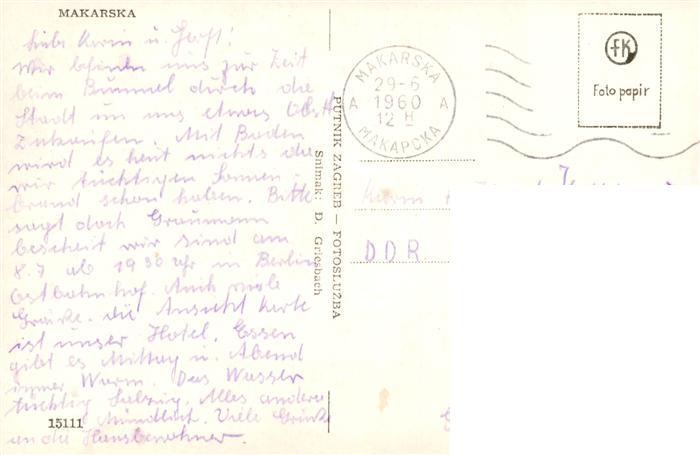 MAKARSKA
Liebe Karin u.
Wir befinden uns zur Zeit
beim Bummel durch die
Stadt um uns etwas Obst
zukaufen. Mit Baden
wird es heut nichts da
wir tüchtigen Sonnen-
brand schon haben. Bitte
sagt doch Graumann
bescheit wir sind am
8.7 ab 19 30 Uhr in Berlin
Ostbahnhof. Auch viele
Grüße. die Ansicht Karte
ist unser Hotel. Essen
gibt es Mittag u. Abend
immer Warm. Das Wasser
tüchtig Salzig. Alles andere
Mündlich. Viele Grüße
an die Hausbewohner.
15111
PUTNIK ZAGREB — FOTOSLUŽBA
Snimak: D. Griesbach
MAKARSKA
29-6
A 1960 A
12 H
МАКАРСКА
FK
Foto papir
Karin
DDR